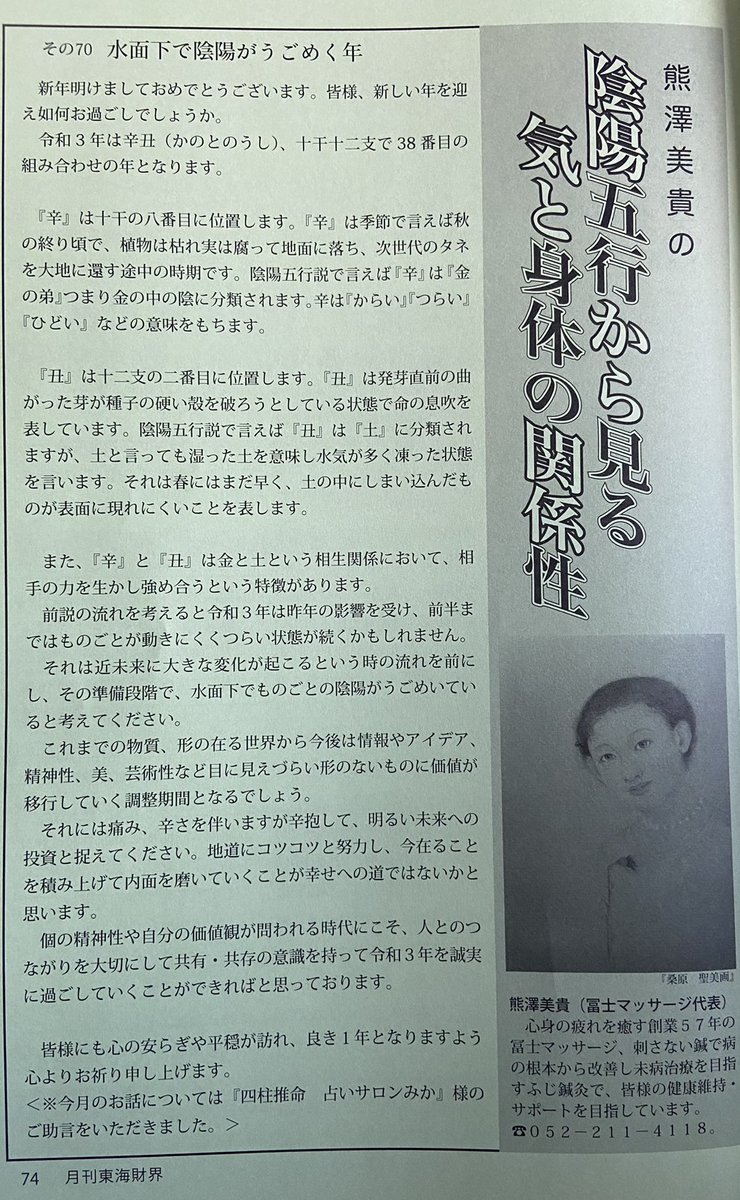 熊澤美貴の
陰陽五行から見る
気と身体の関係性
その70 水面下で陰陽がうごめく年
新年明けましておめでとうございます。皆様、新しい年を迎
え如何お過ごしでしょうか。
令和3年は辛丑（かのとのうし）、十干十二支で38番目の
組み合わせの年となります。
『辛』は十干の八番目に位置します。『辛』は季節で言えば秋
の終り頃で、植物は枯れ実は腐って地面に落ち、次世代のタネ
を大地に還す途中の時期です。陰陽五行説で言えば『辛』は『金
の弟』つまり金の中の陰に分類されます。辛は『からい』『つらい』
『ひどい』などの意味をもちます。
『丑』は十二支の二番目に位置します。『丑』は発芽直前の曲
がった芽が種子の硬い殻を破ろうとしている状態で命の息吹を
表しています。陰陽五行説で言えば『丑』は『土』に分類され
ますが、土と言っても湿った土を意味し水気が多く凍った状態
を言います。それは春にはまだ早く、土の中にしまい込んだも
のが表面に現れにくいことを表します。
また、『辛』と『丑』は金と土という相生関係において、相
手の力を生かし強め合うという特徴があります。
前説の流れを考えると令和3年は昨年の影響を受け、前半ま
ではものごとが動きにくくつらい状態が続くかもしれません。
それは近未来に大きな変化が起こるという時の流れを前に
し、その準備段階で、水面下でものごとの陰陽がうごめいてい
ると考えてください。
これまでの物質、形の在る世界から今後は情報やアイデア、
精神性、美、芸術性など目に見えづらい形のないものに価値が
移行していく調整期間となるでしょう。
それには痛み、辛さを伴いますが辛抱して、明るい未来への
投資と捉えてください。地道にコツコツと努力し、今在ること
を積み上げて内面を磨いていくことが幸せへの道ではないかと
思います。
個の精神性や自分の価値観が問われる時代にこそ、人とのつ
ながりを大切にして共有・共存の意識を持って令和3年を誠実
に過ごしていくことができればと思っております。
皆様にも心の安らぎや平穏が訪れ、良き1年となりますよう
心よりお祈り申し上げます。
＜※今月のお話については『四柱推命　占いサロンみか』様の
ご助言をいただきました。＞
『桑原　聖美画』
熊澤美貴（冨士マッサージ代表）
心身の疲れを癒す創業57年の
冨士マッサージ、刺さない鍼で病
の根本から改善し未病治療を目指
すふじ鍼灸で、皆様の健康維持・
サポートを目指しています。
☎052-211-4118。
74　月刊東海財界